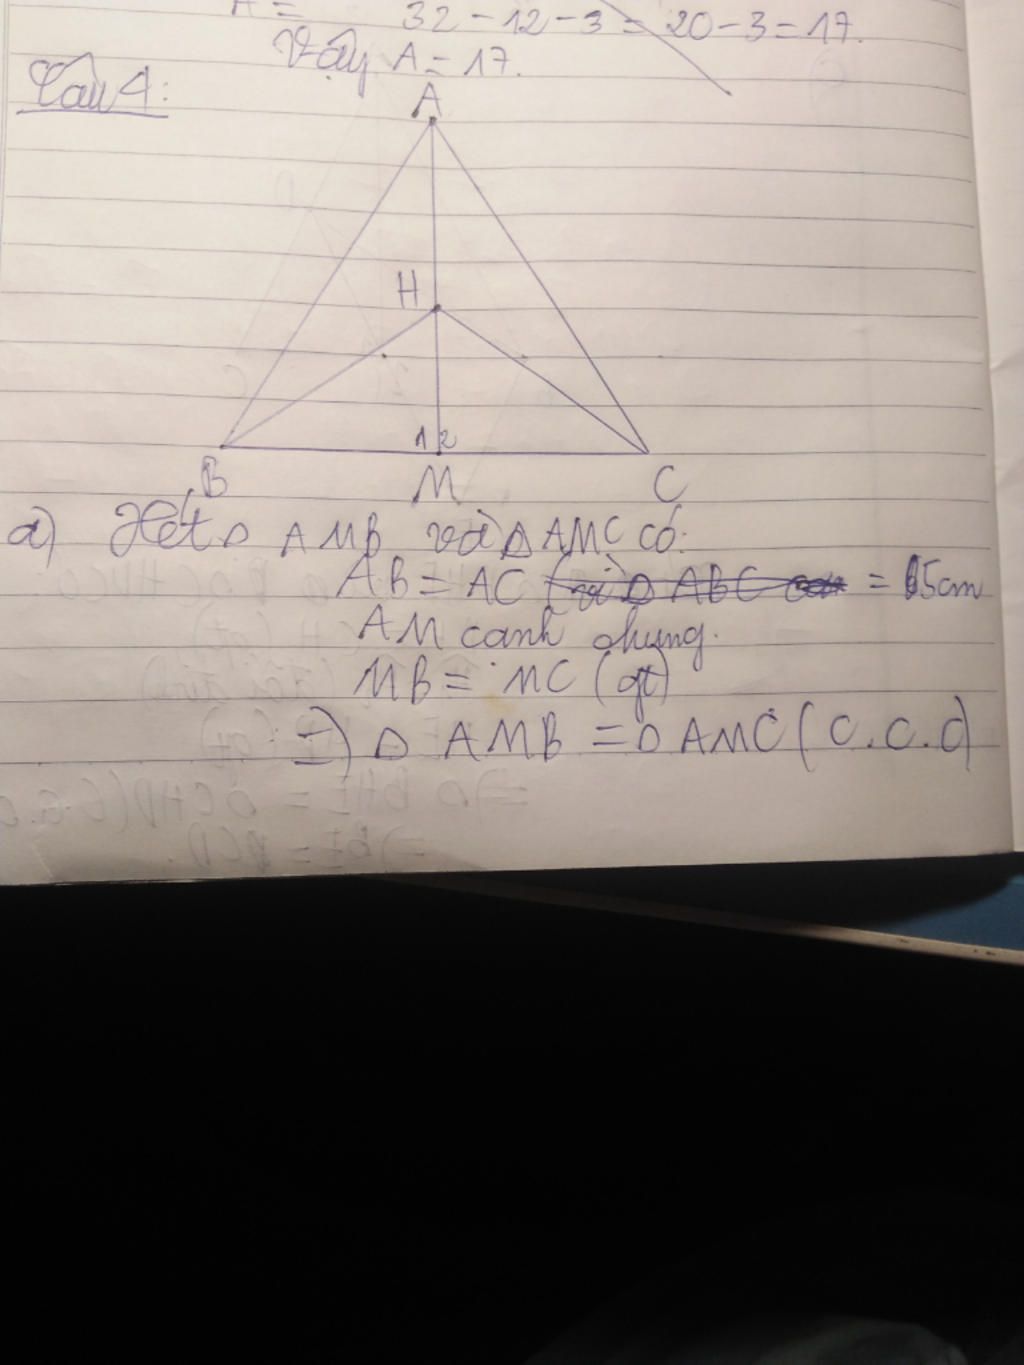 A = 32 - 12 - 3 = 20 - 3 = 17.
Vậy A = 17.
Câu 4:
A
H
1 2
B M C
a) Xét Δ AMB và Δ AMC có:
AB = AC (vì Δ ABC = 15cm
AM cạnh chung.
MB = MC (gt)
=) Δ AMB = Δ AMC (c.c.c)